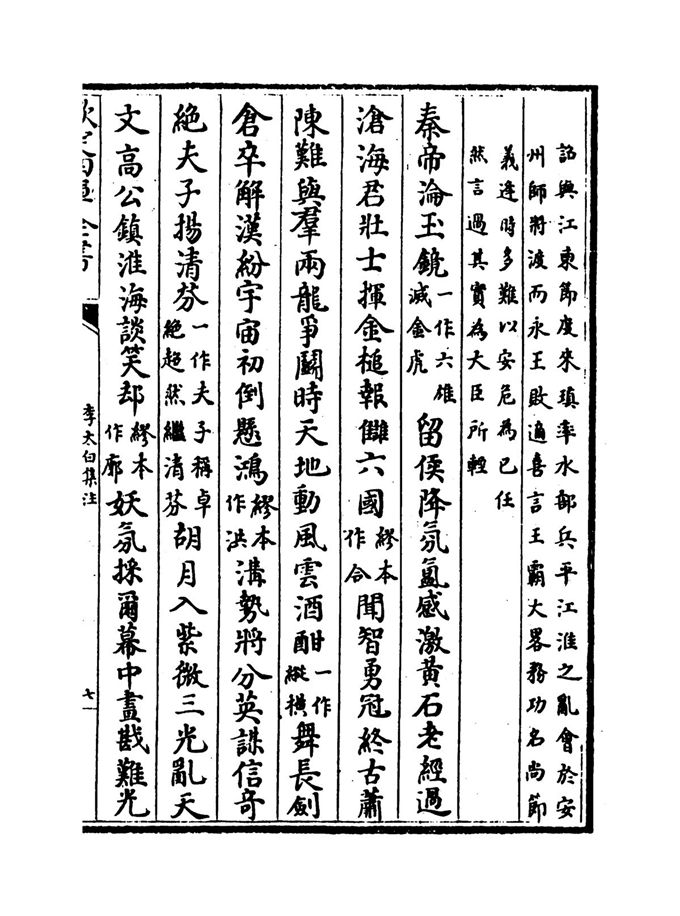 詔與江東節度來瑱率水部兵平江淮之亂會於安
州師將渡而永王敗適喜言王霸大畧務功名尚節
義逢時多難以安危為已任
然言過其實為大臣所輕
秦帝淪玉鏡一作六雄減金虎留侯降氛氳感激黃石老經過
滄海君壯士揮金槌報讎六國繆本作合聞智勇冠終古蕭
陳難與羣兩龍爭鬭時天地動風雲酒酣一作縱橫舞長劍
倉卒解漢紛宇宙初倒懸鴻繆本作洪溝勢將分英謀信奇
絶夫子揚清芬一作夫子稱卓絶超然繼清芬胡月入紫微三光亂天
文高公鎮淮海談笑却繆本作廓妖氛採爾幕中畫戡難光
欽定四庫全書
李太白集注
七